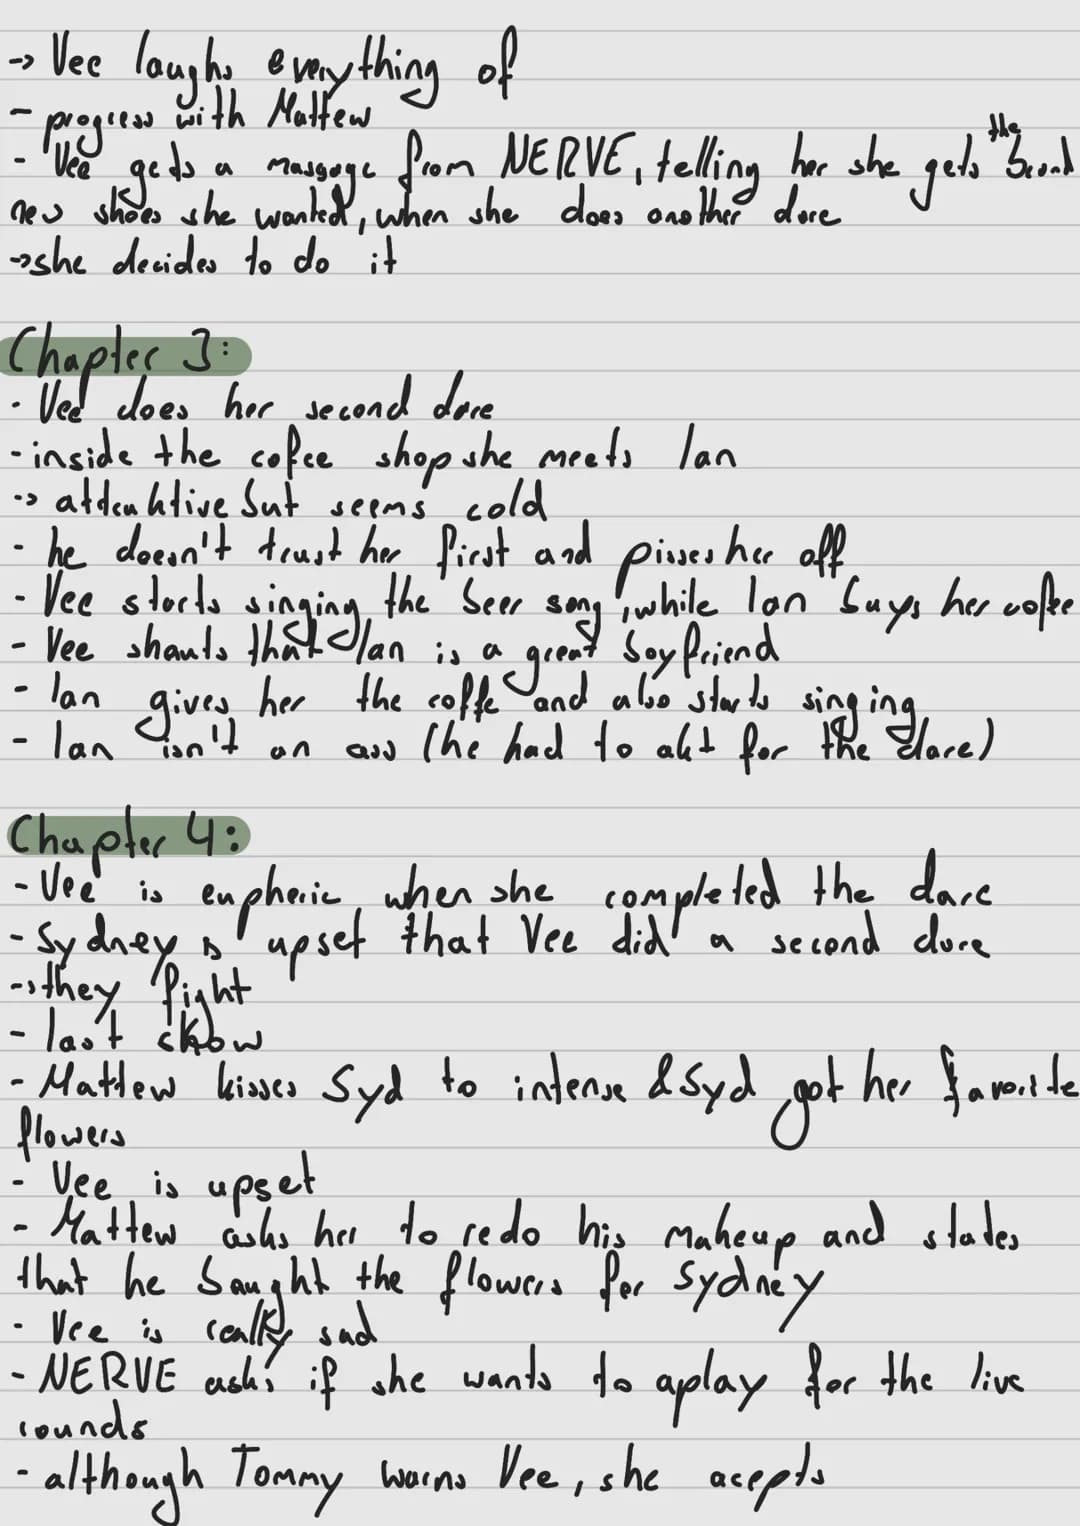 -> Vee laughs everything of
- progress with Mattew
- Vee gets a massage from NERVE, telling her she gets the brand
new shoes she wanted, when she does another dare
->she decides to do it
Chapter 3:
- Vee does her second dare
- inside the coffee shop she meets Ian
-> attrachtive but seems cold
- he doesn't trust her first and pisses her off
- Vee starts singing the beer song, while Ian buys her coffee
- Vee shauts that Ian is a great boyfriend
- Ian gives her the coffe and also starts singing
- Ian isn't an ass (he had to akt for the dare)
Chapter 4:
- Vee is eupheric when she completed the dare
- Sydney is upset that Vee did a second dare
-> they fight
- last show
- Mattew kisses Syd to intense & Syd got her favorite
flowers
- Vee is upset
- Mattew asks her to redo his makeup and states
that he baught the flowers for Sydney
- Vee is really sad
- NERVE asks if she wants to aplay for the live
rounds
- although Tommy warns Vee, she acepts